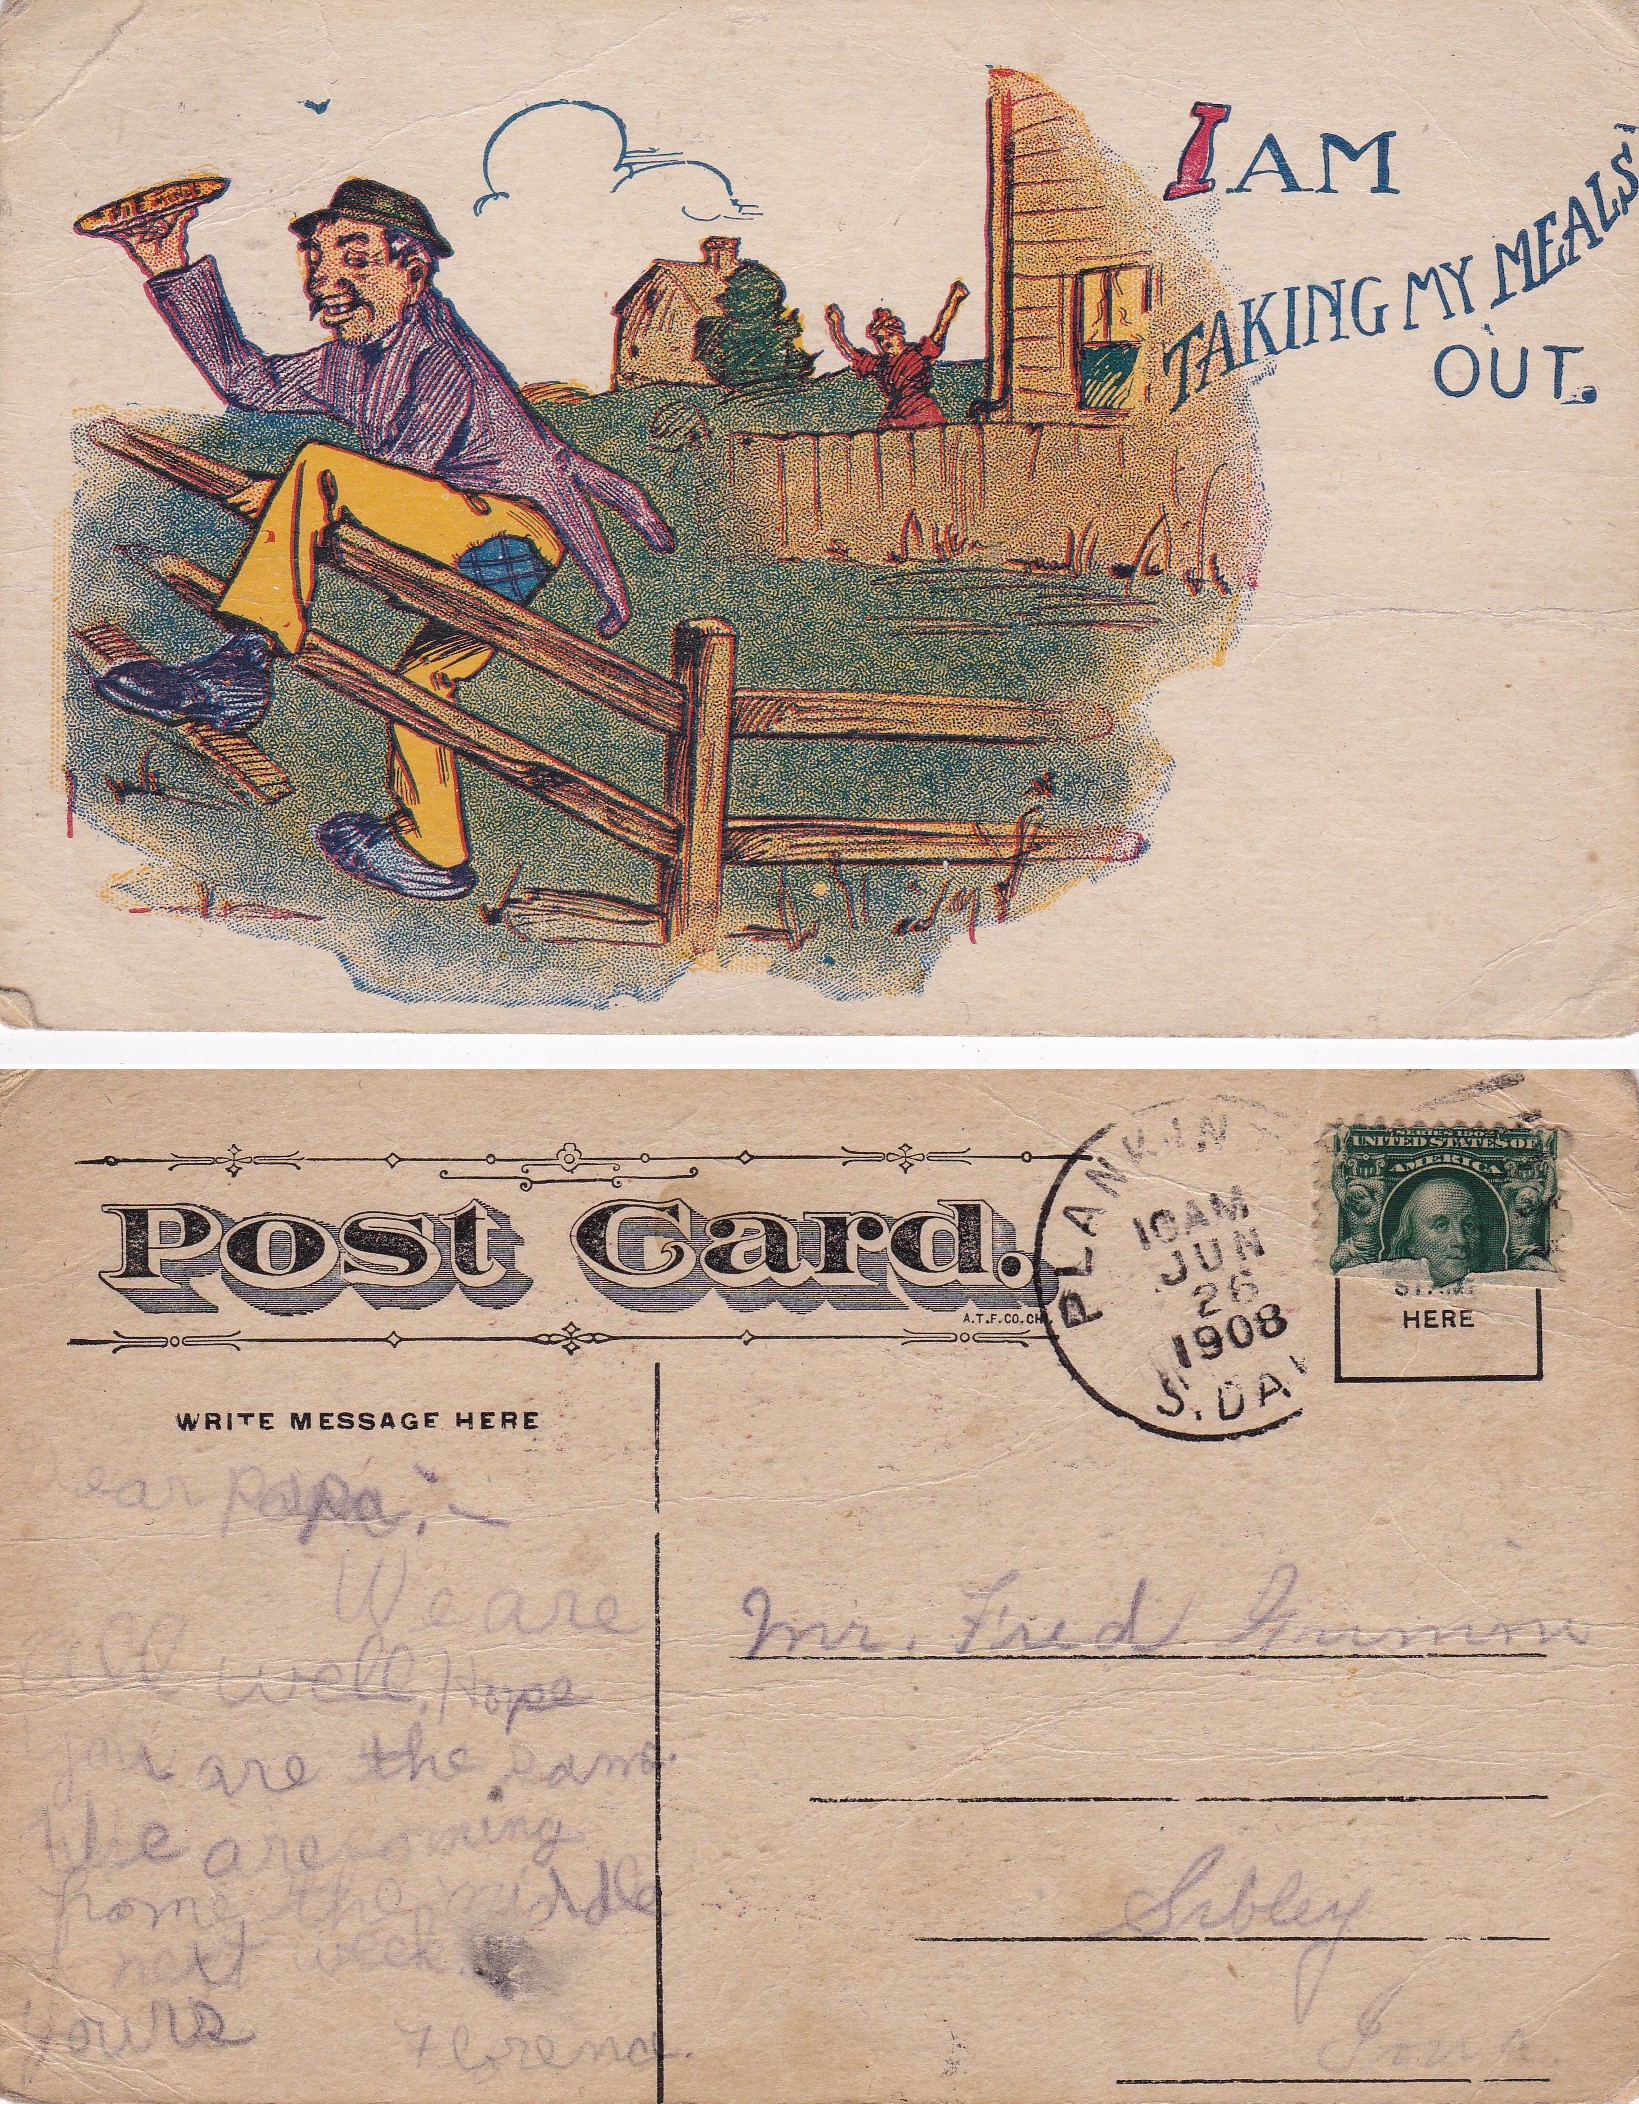 I AM
TAKING MY MEALS
OUT.
Post Card.
A.T.F.CO.CH.
PLANKIN
10AM
JUN
26
1908
S. DAK
SERIES 1902
UNITED STATES OF
AMERICA
STAMP
HERE
WRITE MESSAGE HERE
Dear papa,—
We are
all well, Hope
you are the same.
We are coming
home the middle
next week.
Yours Florence.
Mr. Fred Grimm
Sibley
Iowa.